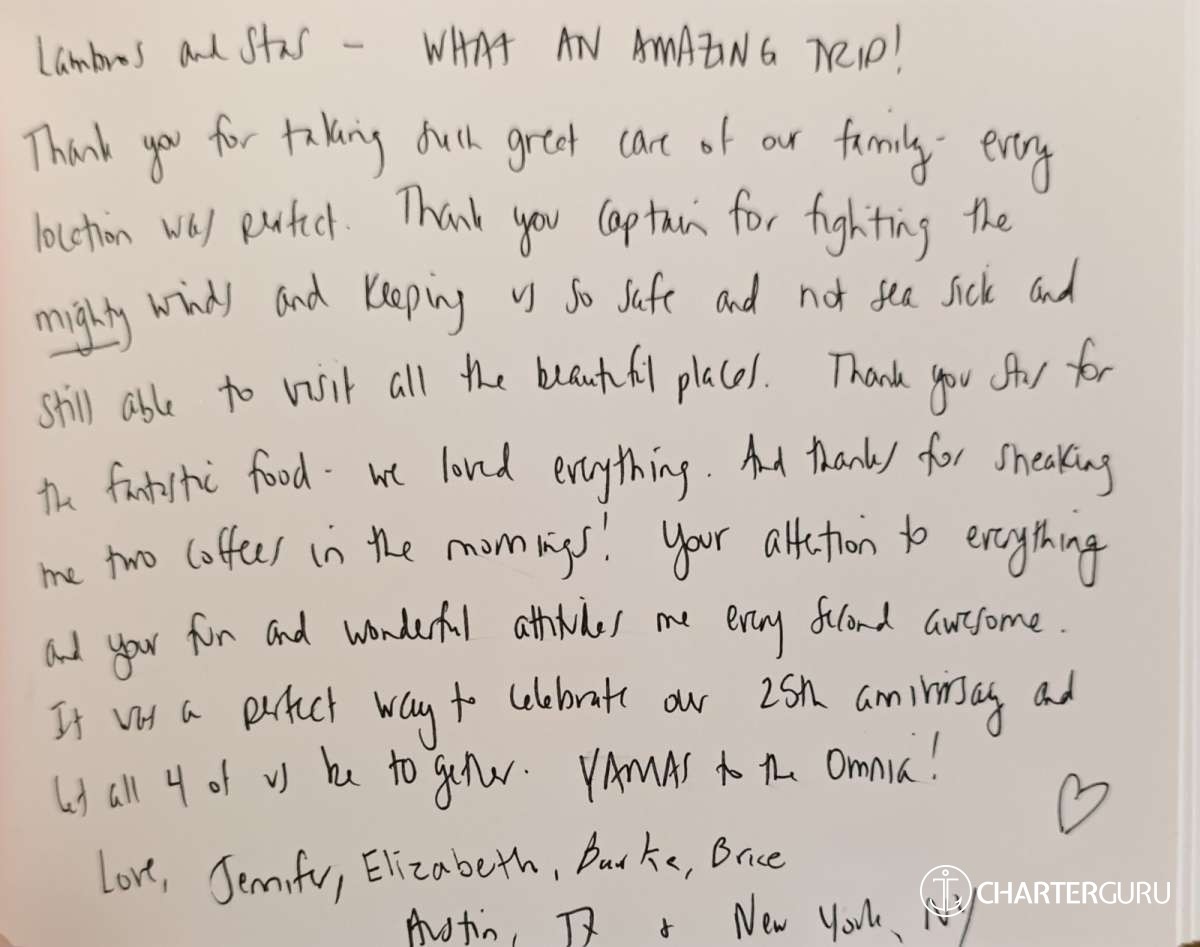 Lambros and Stas - WHAT AN AMAZING TRIP!
Thank you for taking such great care of our family - every
location was perfect. Thank you Captain for fighting the
mighty winds and keeping us so safe and not sea sick and
still able to visit all the beautiful places. Thank you Stas for
the fantastic food - we loved everything. And thanks for sneaking
me two coffees in the mornings! Your attention to everything
and your fun and wonderful attitudes me every second awesome.
It was a perfect way to celebrate our 25th anniversary and
let all 4 of us be together. YAMAS to the Omnia!
Love, Jennifer, Elizabeth, Burke, Brice
Austin, TX + New York, NY
CHARTERGURU